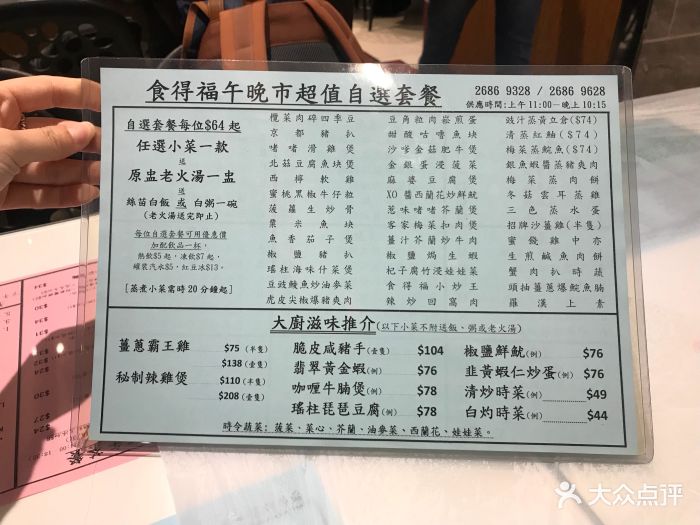 食得福午晚市超值自選套餐
2686 9328 / 2686 9628
供應時間:上午 11:00—晚上 10:15
自選套餐每位$64 起
任選小菜一款
送
原盅老火湯一盅
送
絲苗白飯 或 白粥一碗
(老火湯送完即止)
每位自選套餐可用優惠價
加配飲品一杯,
熱飲$5 起, 凍飲$7 起,
罐裝汽水$5, 紅豆冰$13。
[蒸煮小菜需時 20 分鐘起]
欖菜肉碎四季豆
京都豬扒
啫啫滑雞煲
北菇豆腐魚塊煲
西檸軟雞
蜜桃黑椒牛仔粒
菠蘿生炒骨
粟米魚塊
魚香茄子煲
椒鹽豬扒
瑤柱海味什菜煲
豆豉鯪魚炒油麥菜
虎皮尖椒爆豬爽肉
豆角粒肉崧煎蛋
甜酸咕嚕魚塊
沙嗲金菇肥牛煲
金銀蛋浸菠菜
麻婆豆腐煲
XO 醬西蘭花炒鮮魷
惹味啫啫芥蘭煲
客家梅菜扣肉煲
薑汁芥蘭炒牛肉
椒鹽焗生蝦
杞子腐竹浸娃娃菜
食得福小炒王
辣炒回窩肉
豉汁蒸黃立倉($74)
清蒸紅鮋($74)
梅菜蒸鯇魚($74)
銀魚蝦醬蒸豬爽肉
梅菜蒸肉餅
冬菇雲耳蒸雞
三色蒸水蛋
招牌沙薑雞(半隻)
蜜餞雞中亦
生煎鹹魚肉餅
蟹肉扒時蔬
頭抽薑蔥爆鯇魚腩
羅漢上素
大廚滋味推介(以下小菜不附送飯、粥或老火湯)
薑蔥霸王雞 $75 (半隻)
$138 (壹隻)
秘制辣雞煲 $110 (半隻)
$208 (壹隻)
脆皮咸豬手(壹隻) $104
翡翠黃金蝦(例) $76
咖喱牛腩煲(例) $78
瑤柱琵琶豆腐(例) $78
椒鹽鮮魷(例) $76
韭黃蝦仁炒蛋(例) $76
清炒時菜(例) $49
白灼時菜(例) $44
時令蔬菜: 菠菜、菜心、芥蘭、油麥菜、西蘭花、娃娃菜。
大众点评